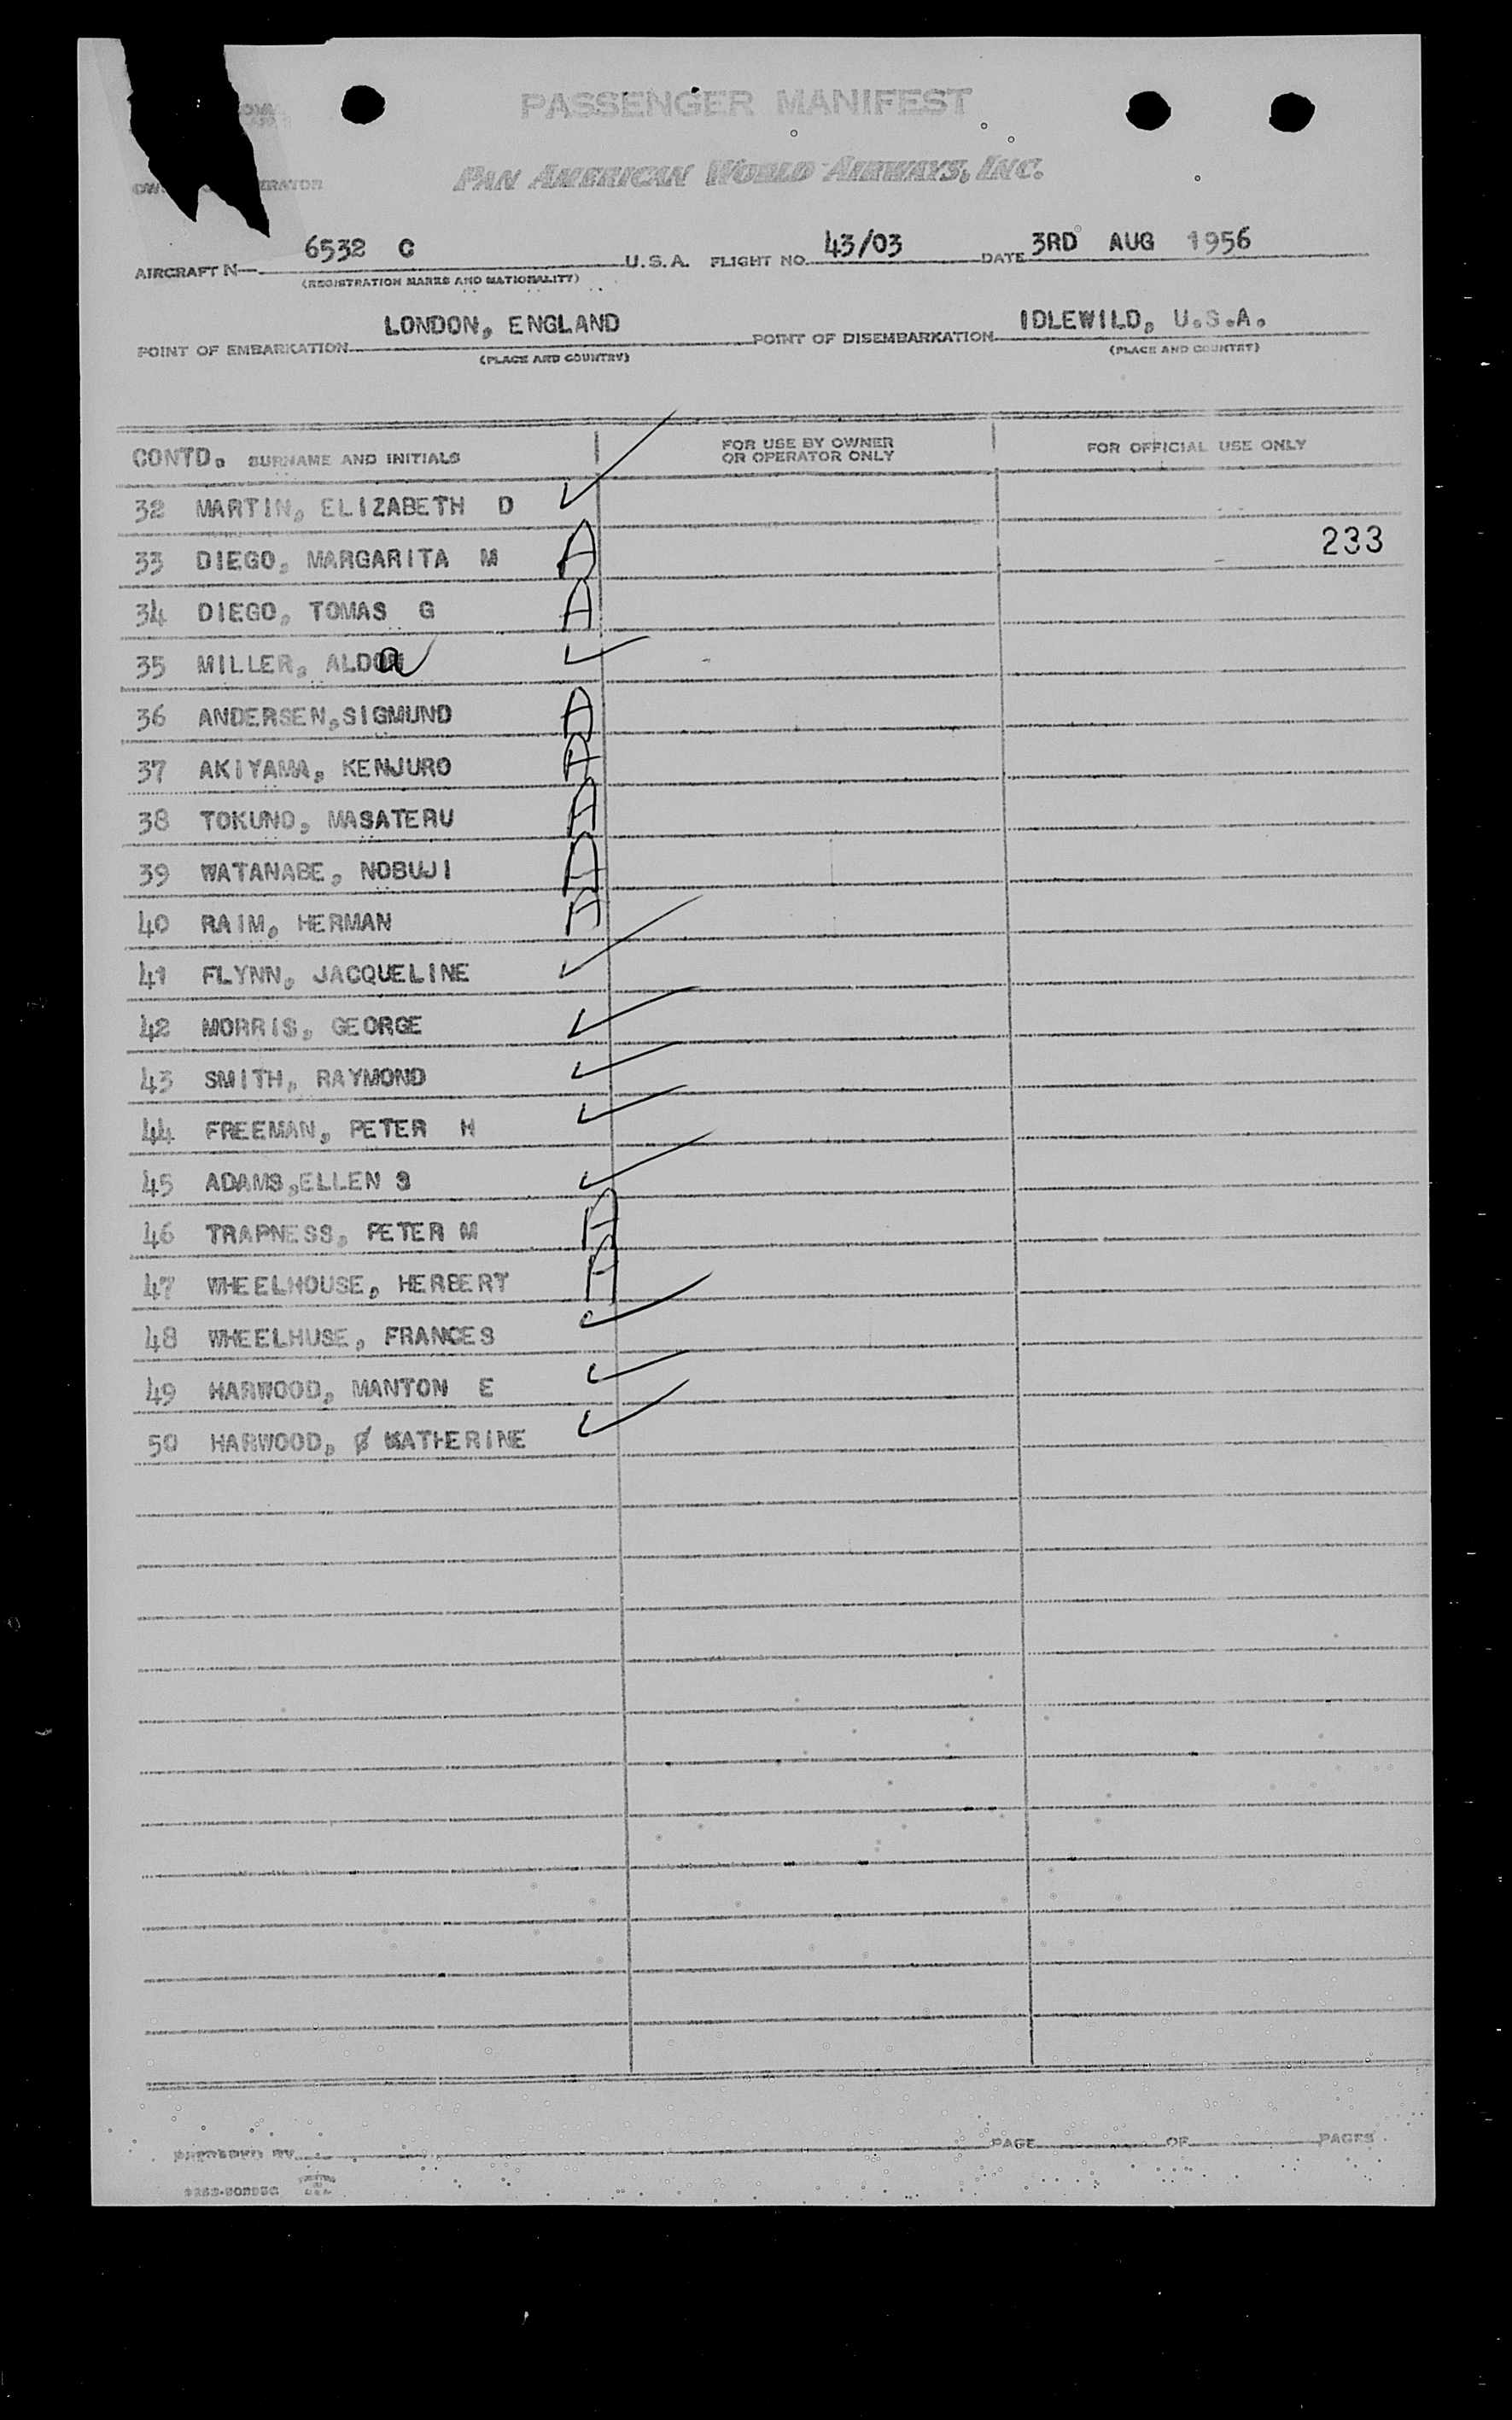 PASSENGER MANIFEST
PAN AMERICAN WORLD AIRWAYS, INC.
AIRCRAFT N 6532 C U.S.A. FLIGHT NO. 43/03 DATE 3RD AUG 1956
(REGISTRATION MARKS AND NATIONALITY)
POINT OF EMBARKATION LONDON, ENGLAND POINT OF DISEMBARKATION IDLEWILD, U.S.A.
(PLACE AND COUNTRY) (PLACE AND COUNTRY)
CONTD. SURNAME AND INITIALS FOR USE BY OWNER OR OPERATOR ONLY FOR OFFICIAL USE ONLY
32 MARTIN, ELIZABETH D ✓
233
33 DIEGO, MARGARITA M A
34 DIEGO, TOMAS G A
35 MILLER, ALDOa ✓
36 ANDERSEN,SIGMUND A
37 AKIYAMA, KENJURO A
38 TOKUNO, MASATERU A
39 WATANABE, NOBUJI A
40 RAIM, HERMAN A
41 FLYNN, JACQUELINE ✓
42 MORRIS, GEORGE ✓
43 SMITH, RAYMOND ✓
44 FREEMAN, PETER H ✓
45 ADAMS,ELLEN S ✓
46 TRAPNESS, PETER M A
47 WHEELHOUSE, HERBERT A
48 WHEELHUSE, FRANCES ✓
49 HARWOOD, MANTON E ✓
50 HARWOOD, KATHERINE ✓
PREPARED BY PAGE OF PAGES